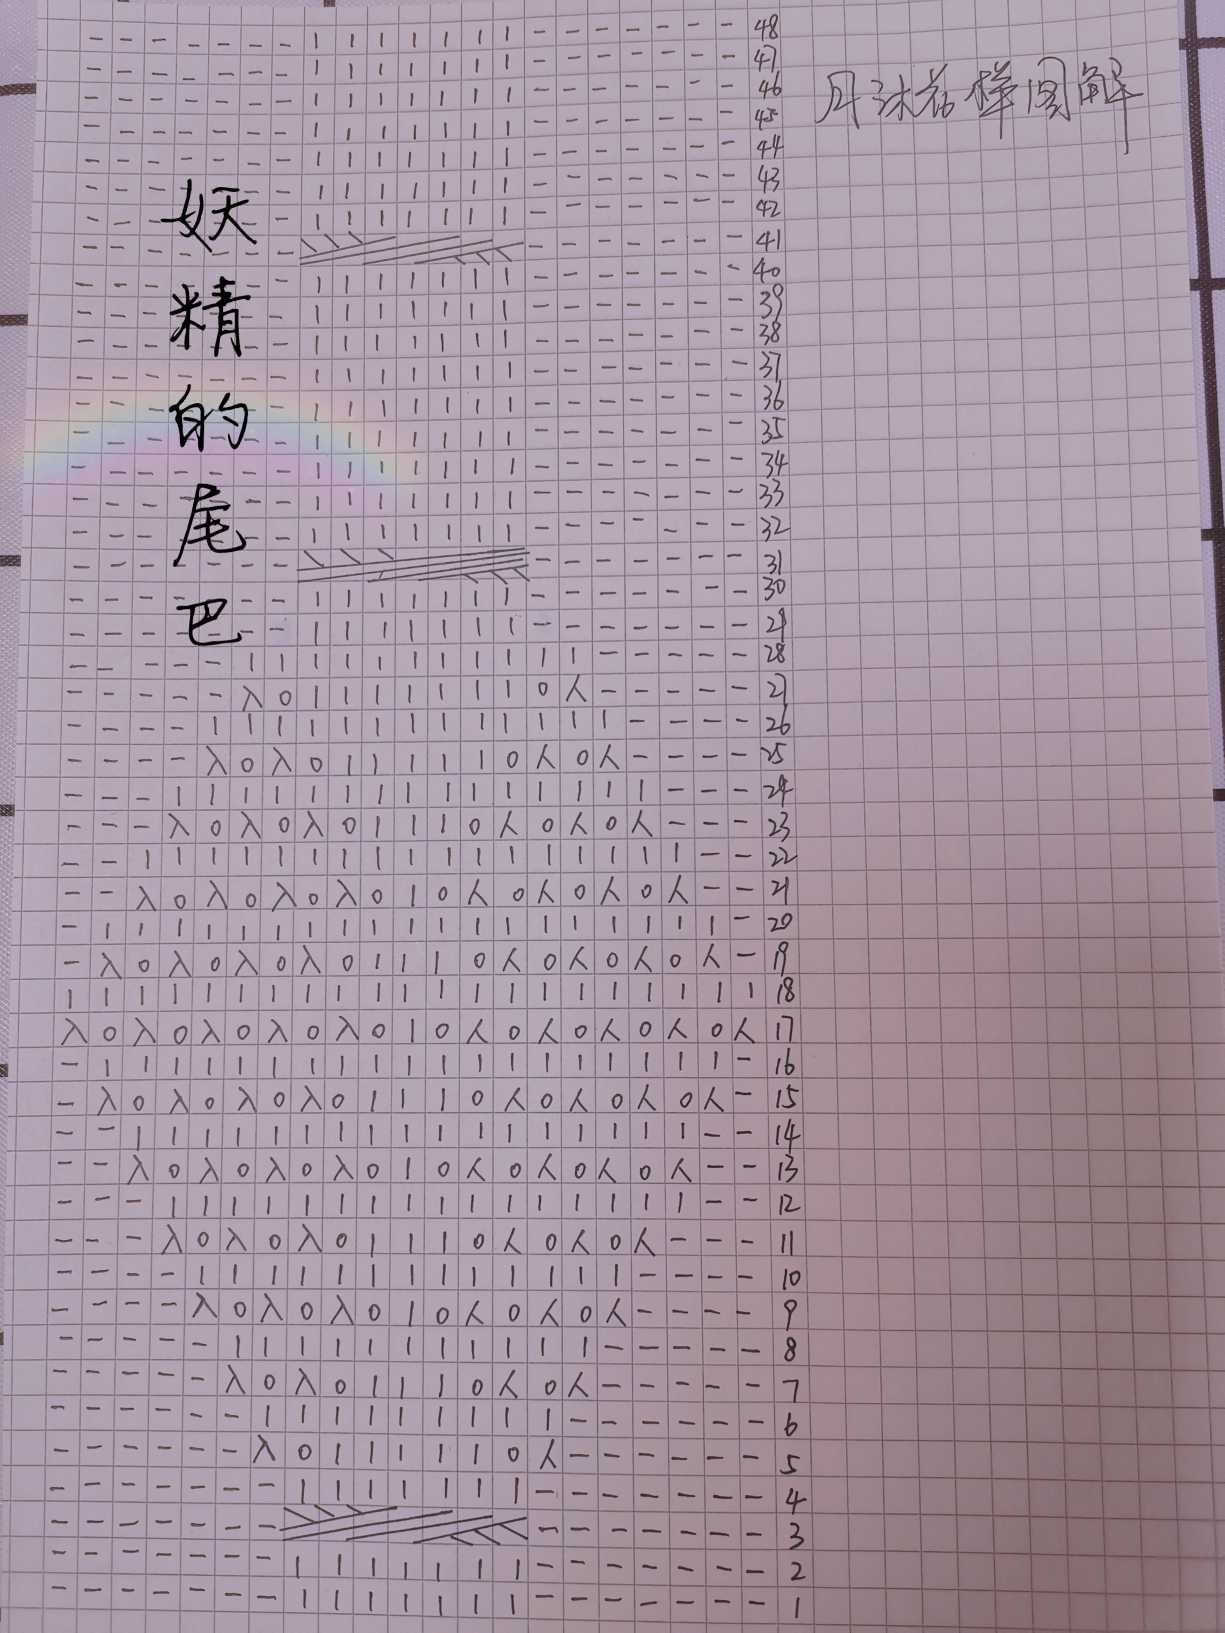 月沐花样图解
妖精的尾巴
48
47
46
45
44
43
42
41
40
39
38
37
36
35
34
33
32
31
30
29
28
27
26
25
24
23
22
21
20
19
18
17
16
15
14
13
12
11
10
9
8
7
6
5
4
3
2
1